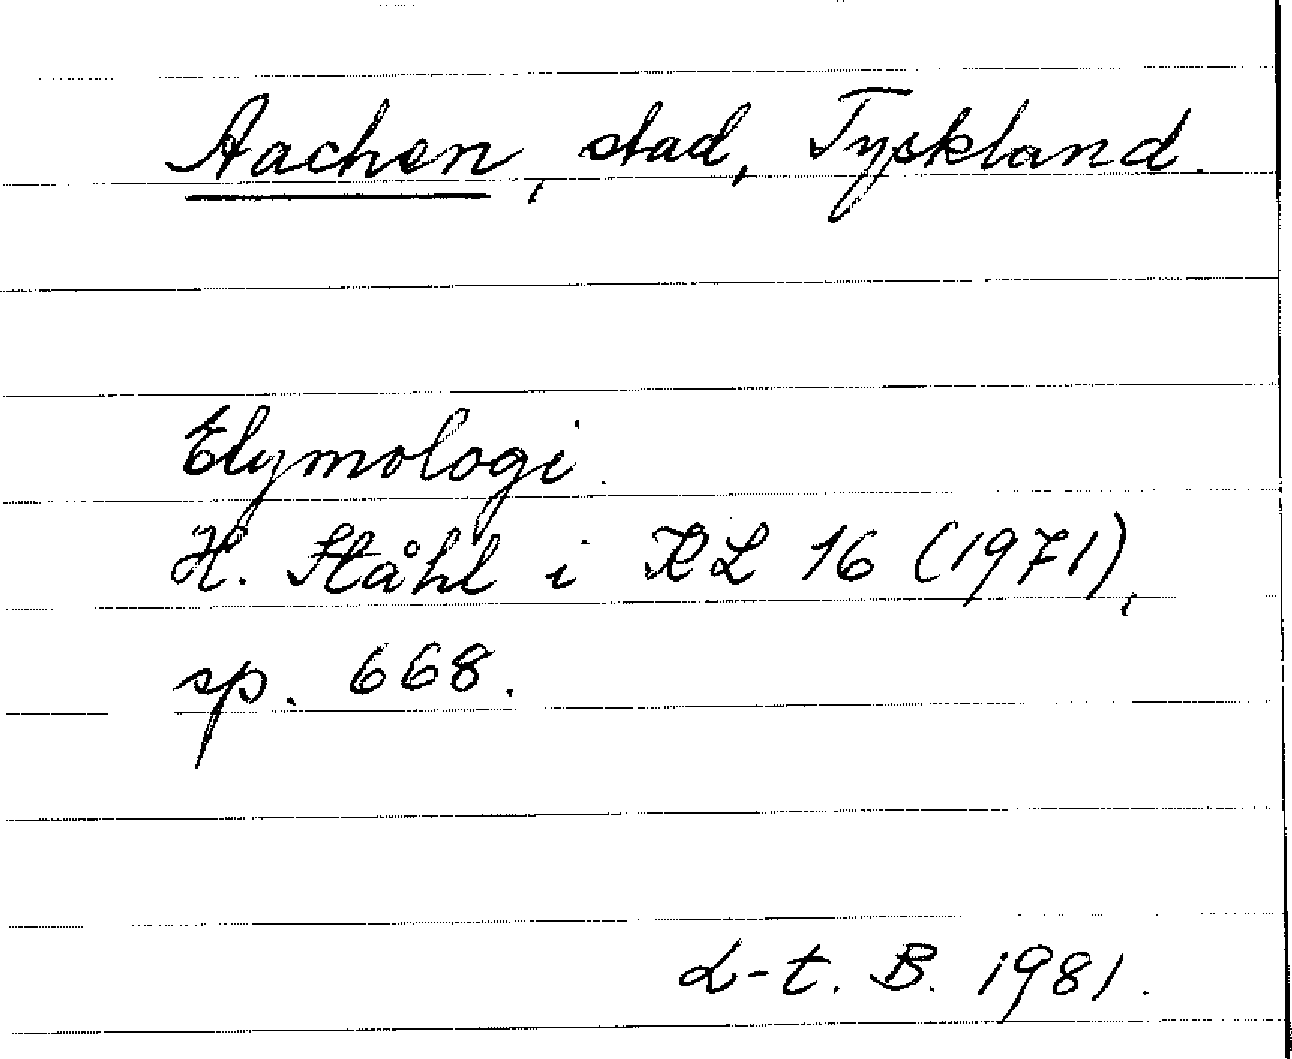 Aachen, stad, Tyskland.
Etymologi.
H. Ståhl i KL 16 (1971),
sp. 668.
L-t. B. 1981.